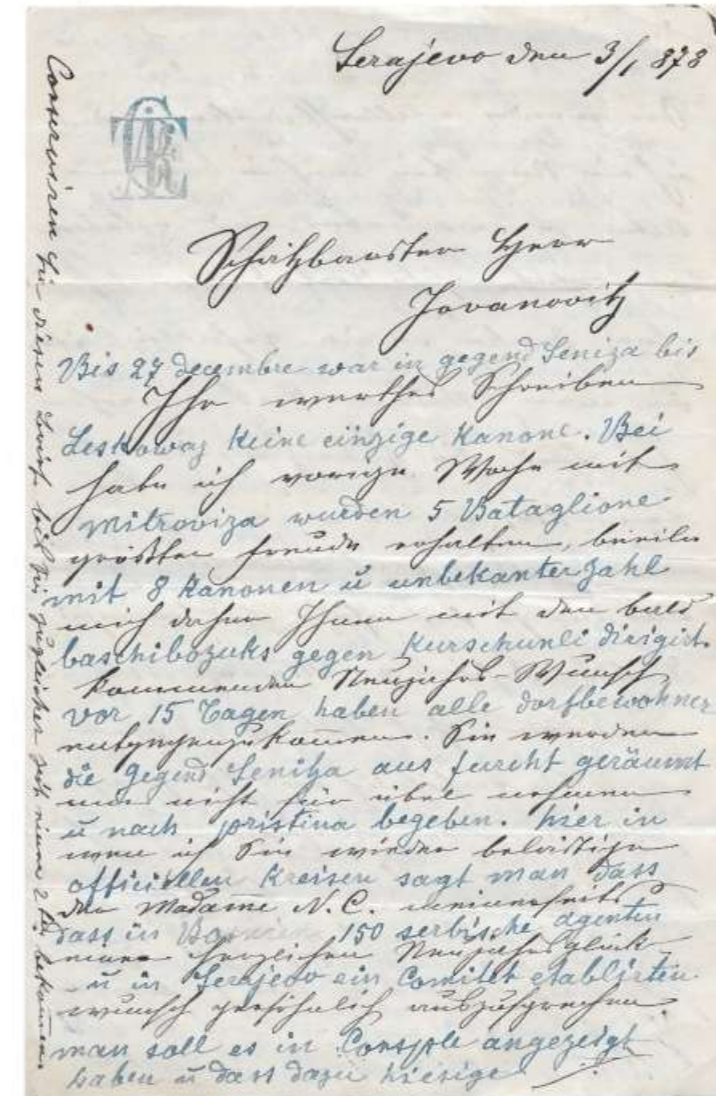 Serajevo den 3/1 878
Schätzbarster Herr
Jovanovitz
Bis 27 decembre war in gegend Seniza bis
Ihr werthes Schreiben
Leskowaz Keine einzige Kanone. Bei
habe ich vorige Woche mit
Mitroviza wurden 5 Bataglione
größter Freude erhalten, beeile
mit 8 Kanonen u unbekanter Zahl
mich daher Ihnen mit den bald
baschibozuks gegen Kurschumli dirigirt.
kommenden Neujahrs-Wunsch
vor 15 Tagen haben alle dorfbewohner
entgegenzukommen. Sie werden
die gegend Senitza aus furcht geräumt
mir nicht für übel nehmen
u nach pristina begeben. hier in
wen ich Sie wieder belästige
officiellen Kreisen sagt man dass
der Madame N. C. meinerseits
dass in Bosnien 150 serbische agenten
herzlichen Neujahrsglück-
u in Serajevo ein Comitet etablirten
wunsch persöhnlich auszusprechen
man soll es in Consple angezeigt
haben u dass dazu hiesige
Conserviren Sie diesen Brief bis Sie zugleicher Zeit einen 2 t. bekommen